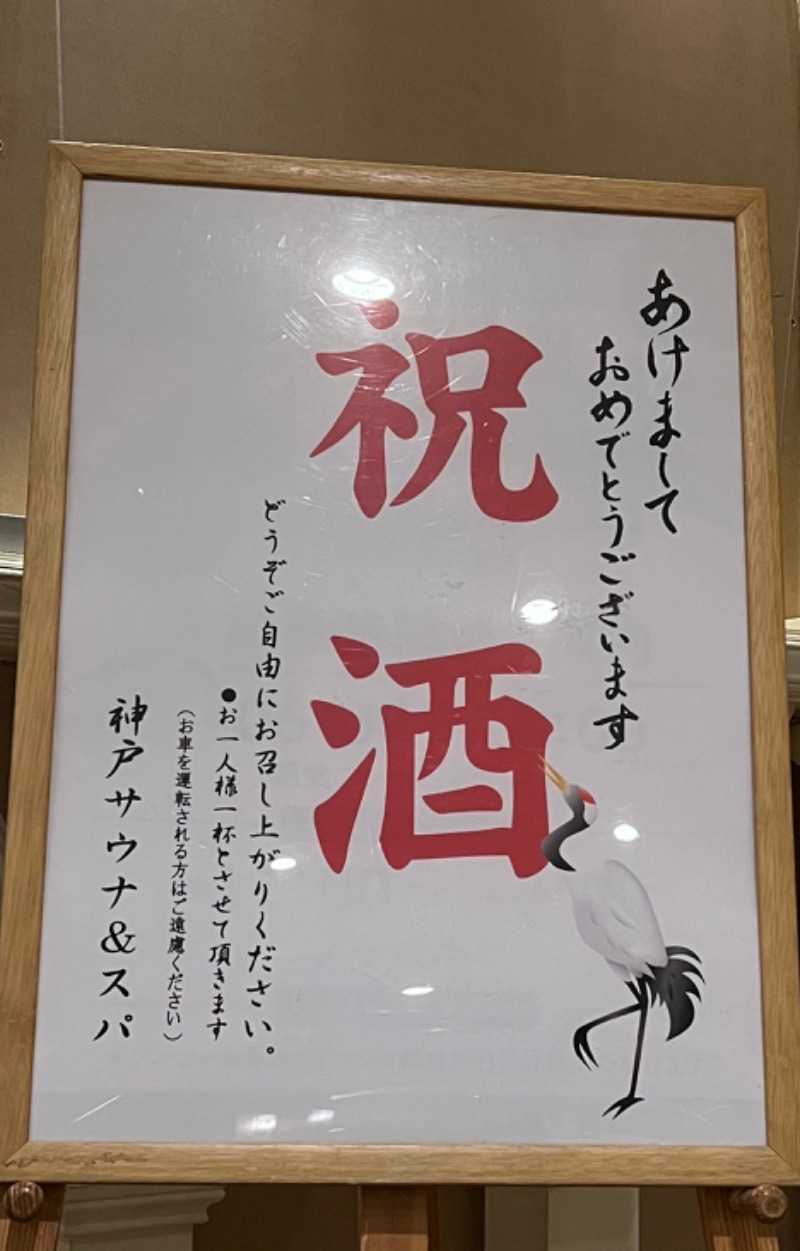 あけまして
おめでとうございます
祝酒
どうぞご自由にお召し上がりください。
●お一人様一杯とさせて頂きます
（お車を運転される方はご遠慮ください）
神戸サウナ&スパ